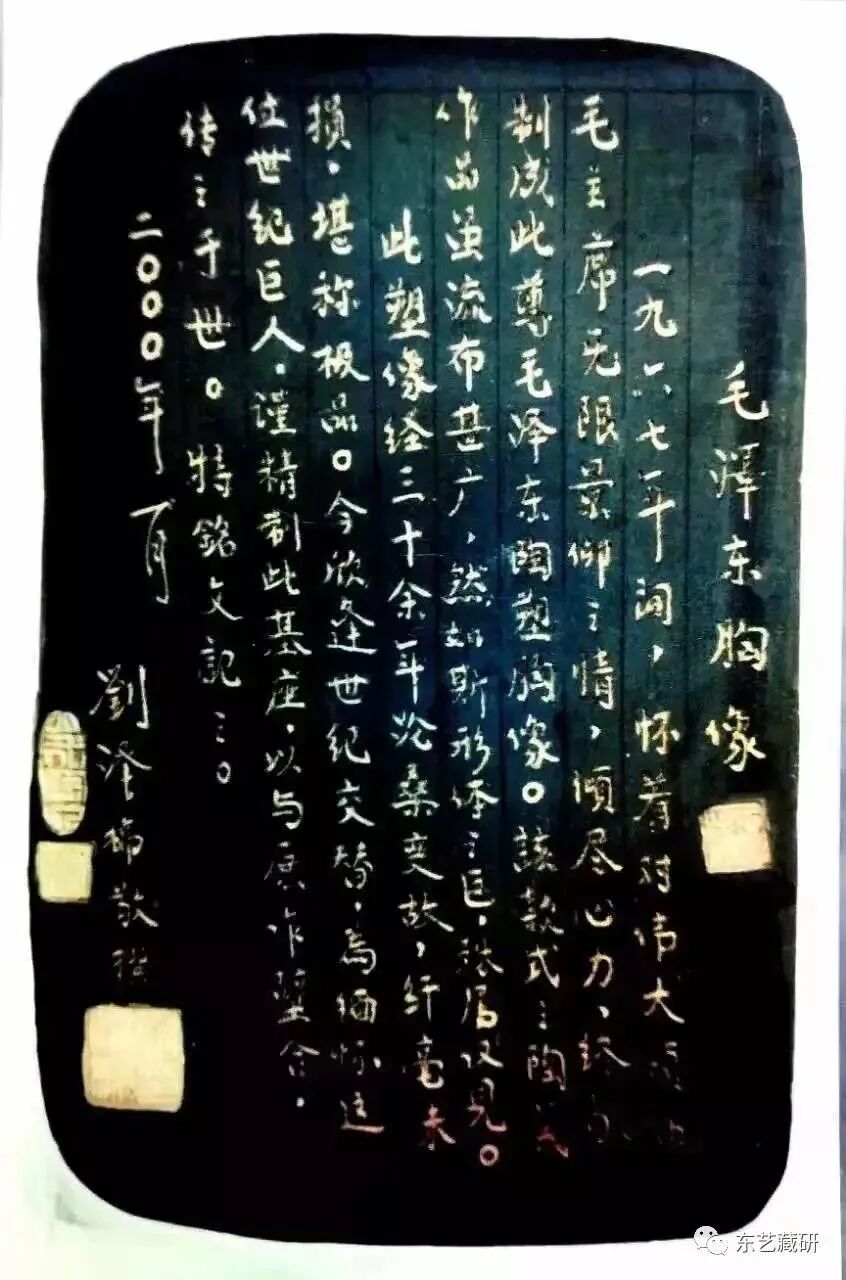 毛泽东胸像
一九六七年间，怀着对伟大领袖
毛主席无限景仰之情，倾尽心力，终为
制成此尊毛泽东陶塑胸像。該款式之陶瓷
作品虽流布甚广，然如斯形体之巨，殊属仅见。
此塑像经三十余年沧桑变故，纤毫未
损，堪称极品。今欣逢世纪交替，为缅怀这
位世纪巨人，谨精制此基座，以与原作璧合，
传之于世。特銘文記之。
二〇〇〇年一月
劉泽棉敬撰
东艺藏研